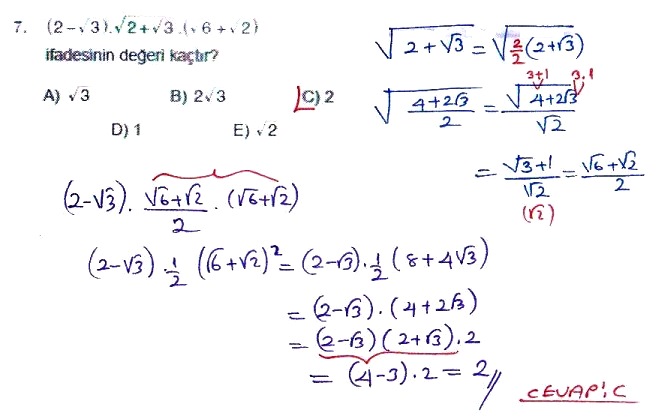 7. (2-√3).√2+√3.(√6+√2)
ifadesinin değeri kaçtır?
A) √3 B) 2√3 C) 2
D) 1 E) √2
√(2+√3) = √(2/2(2+√3))
3+1 3.1
√((4+2√3)/2) = √(4+2√3)/√2
= (√3+1)/√2 = (√6+√2)/2
(√2)
(2-√3). (√6+√2)/2 . (√6+√2)
(2-√3).1/2 (√6+√2)² = (2-√3).1/2 (8+4√3)
= (2-√3).(4+2√3)
= (2-√3)(2+√3).2
= (4-3).2 = 2//
CEVAP: C